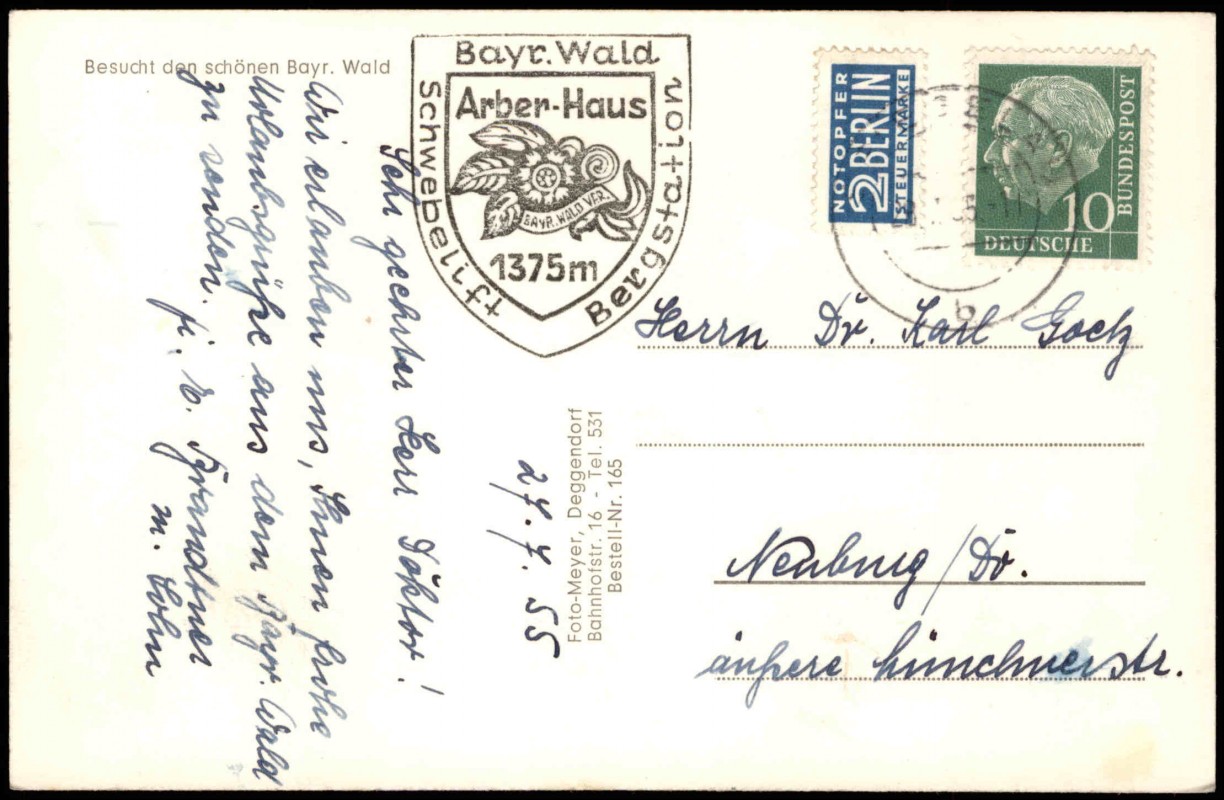 Besucht den schönen Bayr. Wald
Bayr. Wald
Schwebelift
Bergstation
Arber-Haus
BAYR. WALD VER.
1375m
NOTOPFER
2 BERLIN
STEUERMARKE
10
DEUTSCHE
BUNDESPOST
b
27.7.55
Sehr geehrter Herr Doktor!
Wir erlauben uns, Ihnen frohe
Urlaubsgrüße aus dem Bayr. Wald
zu senden.
m. Sohn
Foto-Meyer, Deggendorf
Bahnhofstr. 16 - Tel. 531
Bestell-Nr. 165
Herrn Dr. Karl Goetz
Neuburg/Do.
äußere Münchnerstr.